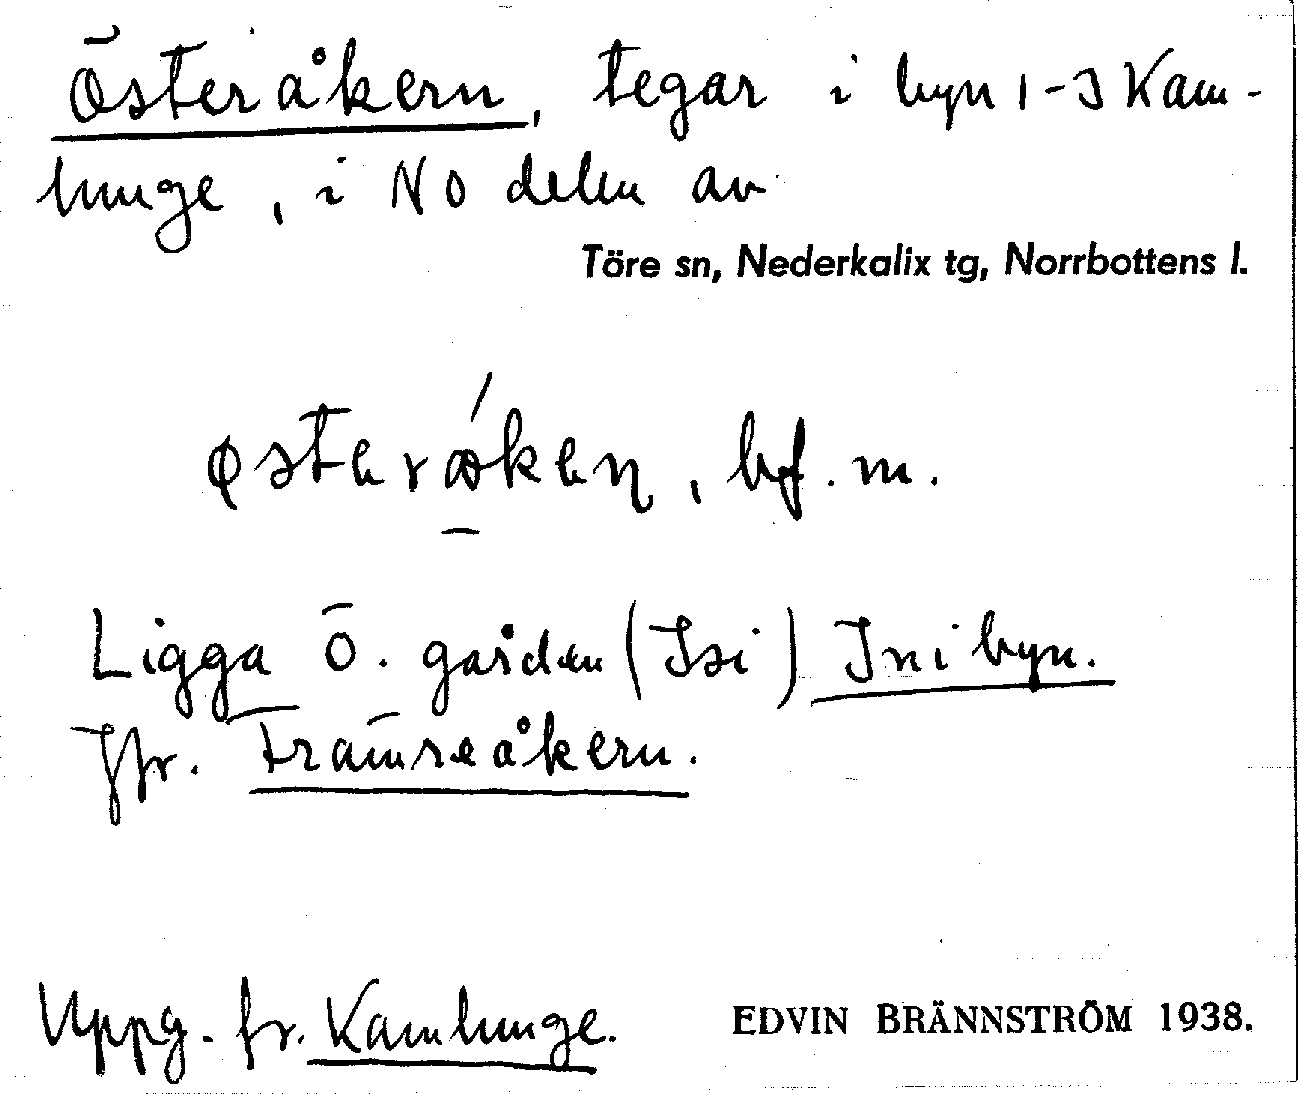 Österåkern, tegar i byn 1-3 Kam-
lunge, i NO delen av
Töre sn, Nederkalix tg, Norrbottens l.
østeråken, bf. m.
Ligga Ö. gården (Isi) Inibyn.
Jfr. Främreåkern.
Uppg. fr. Kamlunge.
EDVIN BRÄNNSTRÖM 1938.